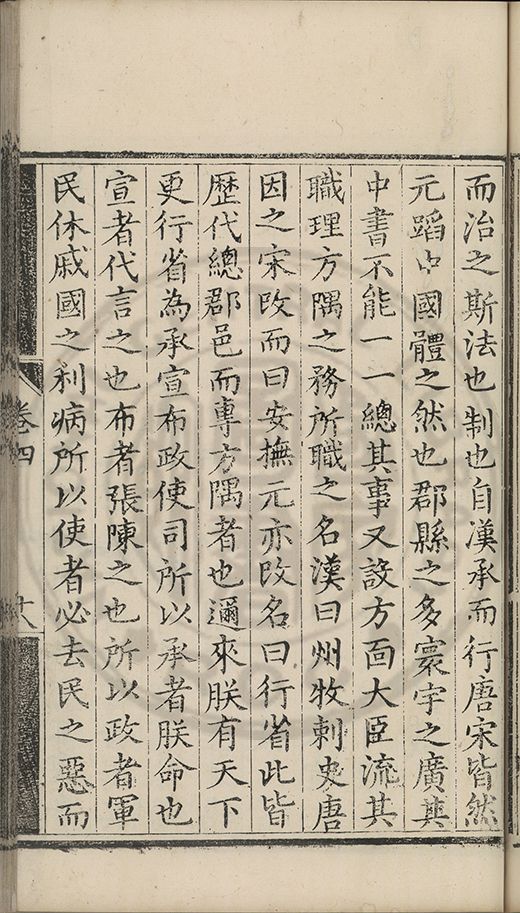 而治之斯法也制也自漢承而行唐宋皆然
元蹈中國體之然也郡縣之多寰宇之廣其
中書不能一一總其事又設方面大臣流其
職理方隅之務所職之名漢曰州牧刺史唐
因之宋改而曰安撫元亦改名曰行省此皆
歷代總郡邑而專方隅者也邇來朕有天下
更行省為承宣布政使司所以承者朕命也
宣者代言之也布者張陳之也所以政者軍
民休戚國之利病所以使者必去民之惡而
卷四
十八